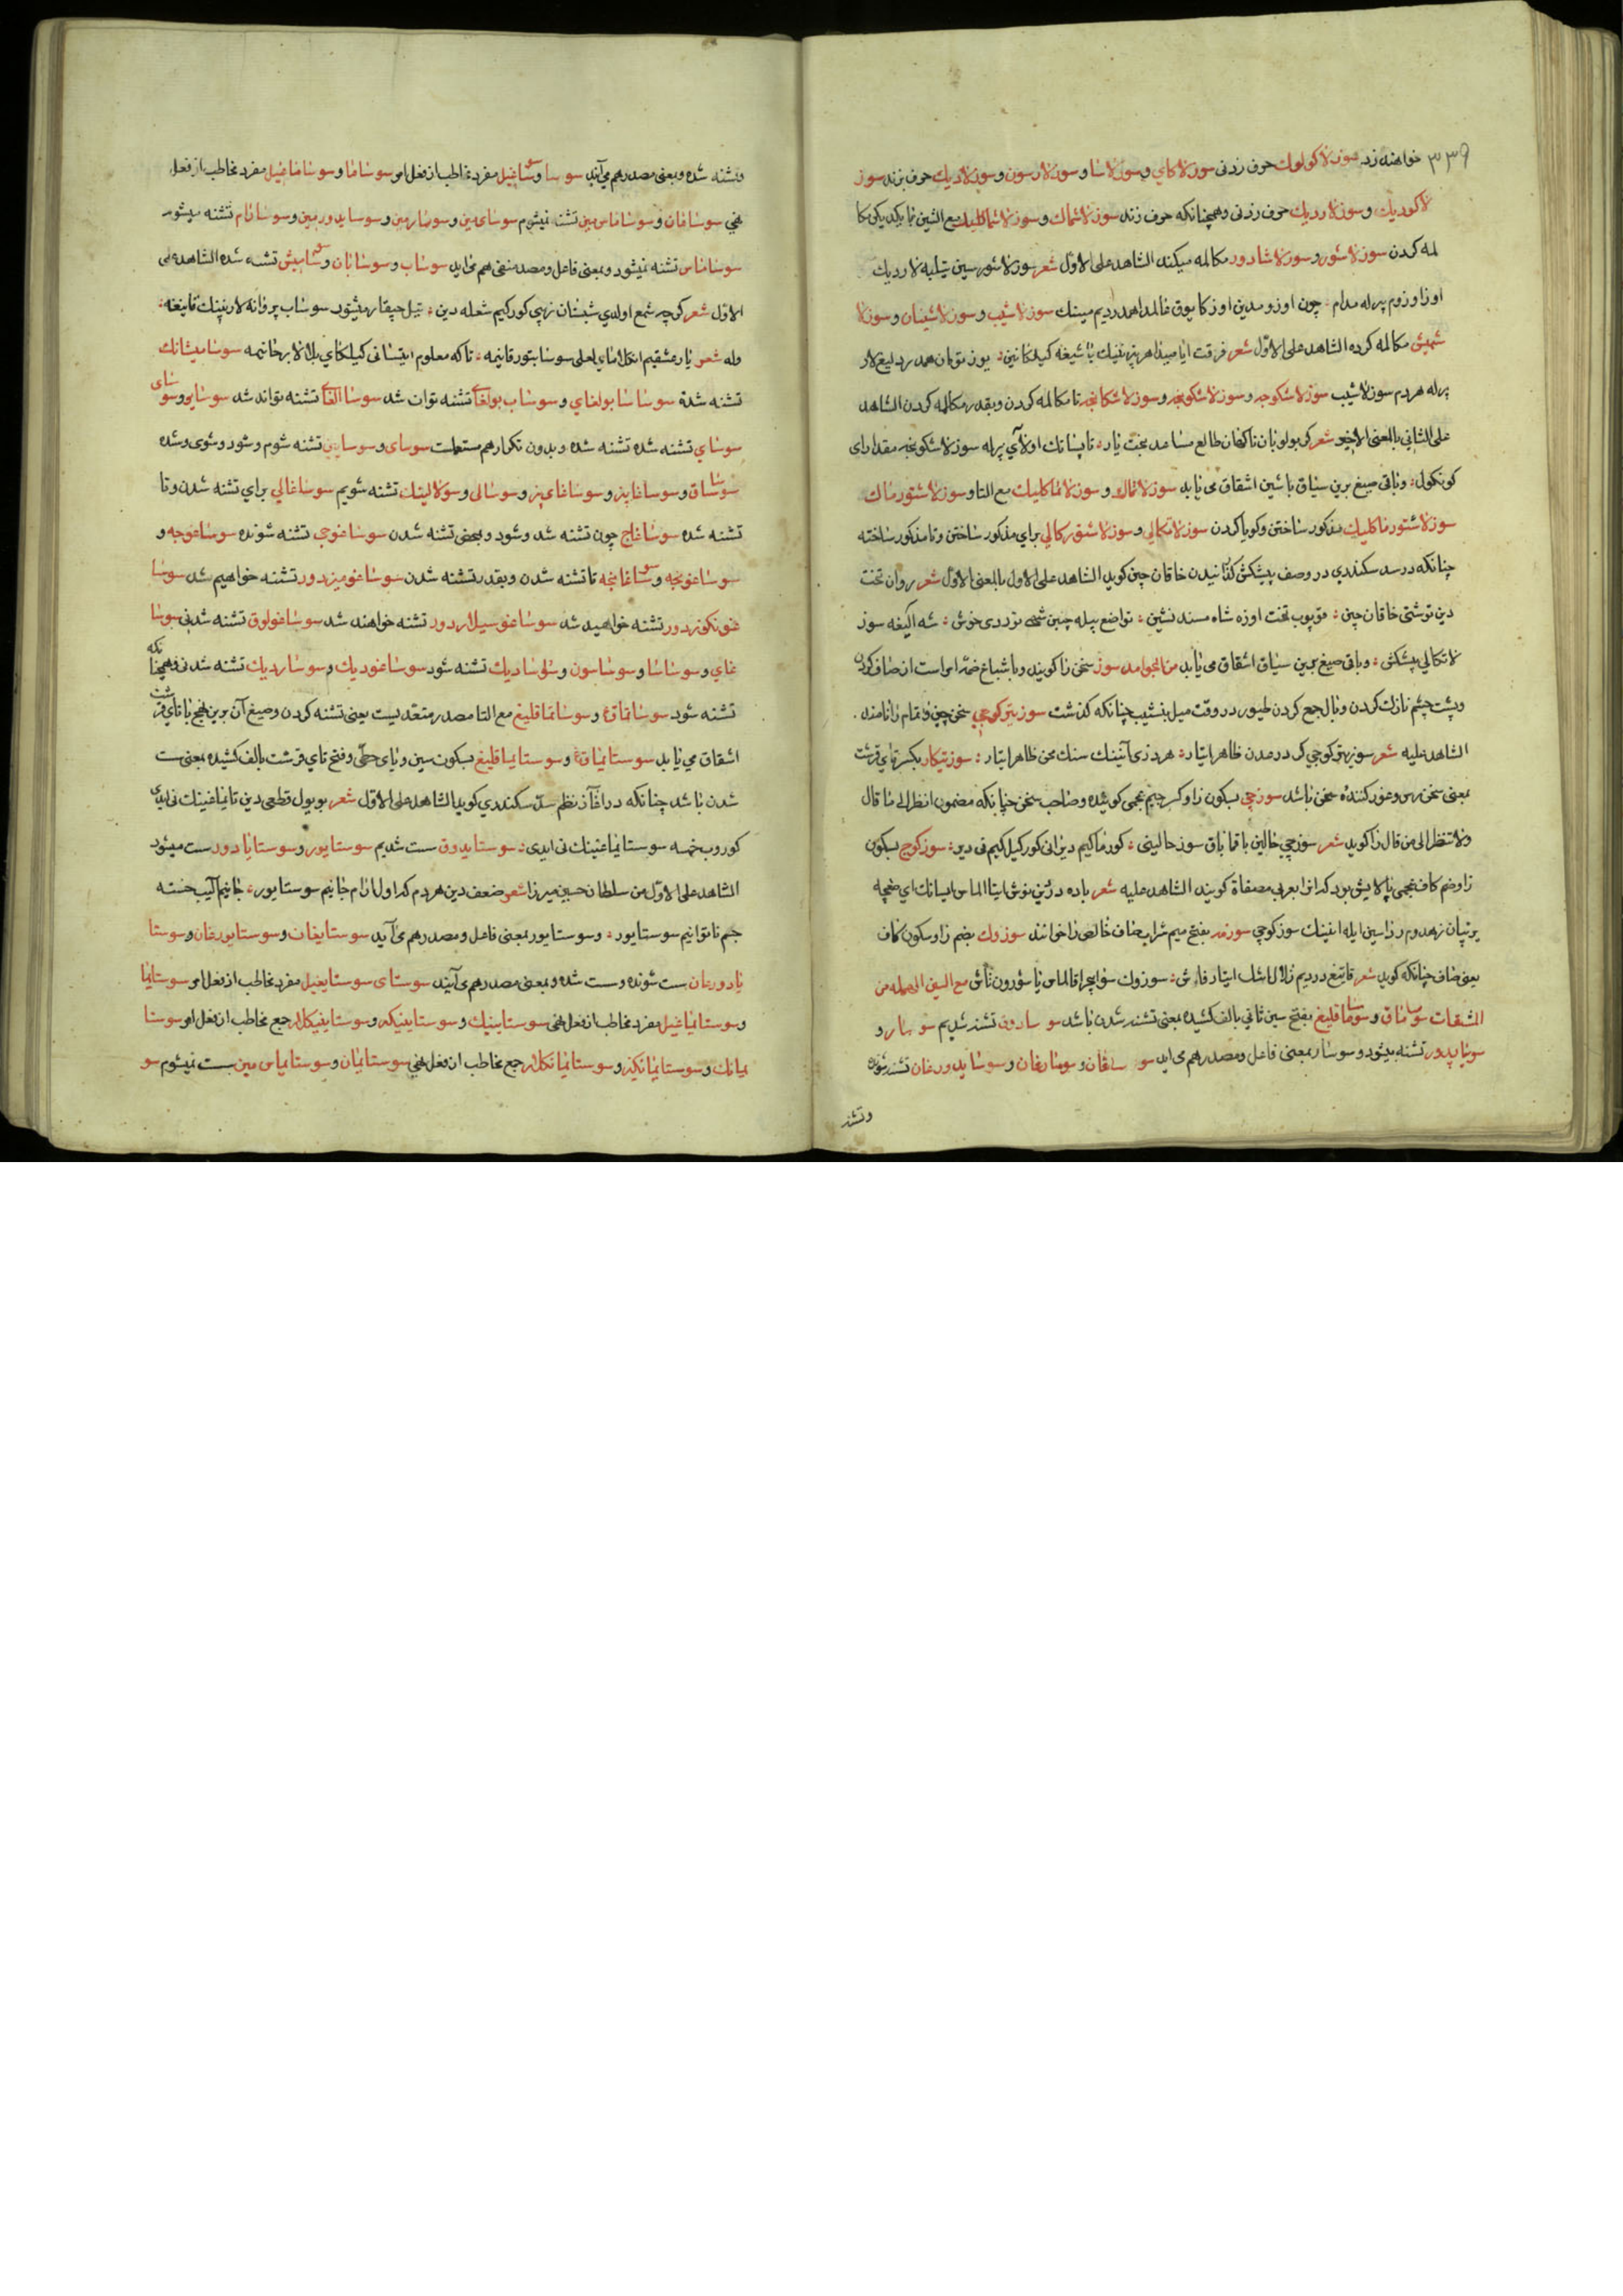 ٣٣٩ خواهند زد سوزلاکولوك حرف زدنی سوزلاکای وسوزلاسا وسوزلارسون وسوزلادیك حرف بزند سوز
لاکودیك وسوزلاردیك حرف زدنی وهمچنانکه حرف زند سوزلاشماك وسوزلاشماکلیك مع الشین با یکدیکر مکا
لمه کردن سوزلاشور وسوزلاشادور مکالمه میکند الشاهد علی الاول شعر سوزلاشورسین تیلبه لاردیك
اوزاوزوم بیرله مدام چون اوزومدین اوزکا یوق قالدا همدردیم مینك سوزلاشیب وسوزلاشیبان وسوزلا
شمیش مکالمه کرده الشاهد علی الاول شعر فرقت
بیرله هردم سوزلاشیب سوزلاشکوجه وسوزلاشکونجه وسوزلاشکانجه تا مکالمه کردن وبقدر مکالمه کردن الشاهد
علی الثانی بالمعنی الاخیر شعر طالع مساعد بخت یار بیرله سوزلاشکونجه مقدارای
کونکول وباقی صیغ برین سیاق با شین اشقاق می یابد سوزلاتماك وسوزلاتماکلیك مع التا وسوزلاشتورماك
سوزلاشتورماکلیك مذکور ساختن وکویا کردن سوزلاتکالی وسوزلاشتورکالی برای مذکور ساختن وتا مذکور ساخته
چنانکه در سد سکندری در وصف پیشکش کذرانیدن خاقان چین کوید الشاهد علی الاول بالمعنی الاول شعر روان تخت
دین توشتی خاقان چین قویوب تخت اوزه شاه مسند نشین تواضع بیله چین شهی خوش شه الیغه سوز
لاتکالی پیشکش وباقی صیغ برین سیاق اشقاق می یابد من الجوامد سوز سخن را کویند وباشباع ضمه امر است از صاف کردن
وپشت چشم نازك کردن وبال جمع کردن طیور در وقت میل بنشیب چنانکه کذشت سوزیتورکوچی سخن چین ونمام را نامند
الشاهد علیه شعر سوزیتورکوچی ظاهر ایتار هر ینك سنك محن ظاهر ایتار سوزتیکار بکسر تای قرشت
بمعنی سخن رس وغور کنندۀ سخن باشد سوزچی بسکون زا وکسر جیم عجمی کوینده وصاحب سخن چنانکه مضمون انظر الی ما قال
ولا تنظر الی من قال را کوید شعر سوزچی حالین باقما باق سوز حالینی کورماکیم دیر انی کورکیل کیم نی دیر سوزکوچ بسکون
زا وضم کاف عجمی پالایش بود که انرا بعربی مصفاة کویند الشاهد علیه شعر باده
سوزکوچی سوزمه بفتح میم شراب صاف خالص را خوانند سوزوك بضم زا وسکون کاف
یعنی صاف چنانکه کوید شعر سوزوك مع السین المهمله من
المشتقات سوساماق وسوساماقلیغ بفتح سین ثانی بالف کشیده بمعنی تشنه شدن باشد سوسادوق تشنه شدیم سوسار و
سوسایدور تشنه میشود وسوسار بمعنی فاعل ومصدر هم می اید سوساغان وسوسارغان وسوسایدورغان تشنه شونده
وتشنه
وتشنه شده وبمعنی مصدر هم می آیند سوسا وسوساغیل مفرد مخاطب از فعل امر سوساما وسوساماغیل مفرد مخاطب از فعل
نهی سوسامان وسوساماس مین تشنه نمیشوم سوسای مین وسوسارمین وسوسایدورمین وسوسارام تشنه میشوم
سوساماس تشنه نمیشود وبمعنی فاعل ومصدر منفی هم می اید سوساب وسوسابان وسوسامیش تشنه شده الشاهد علی
الاول شعر کرچه شمع اولدی شبستان کورکیم شعله دین تیل چیقارمیشتور سوساب پروانه لارنینك قانیغه
وله شعر یار عشقیم لعلی سوسابتور قانیمه تا که معلوم ایتسانی کیلکای بلالار جانیمه سوسامیشانك
تشنه شدۀ سوساسا بولغای وسوساب بولغای تشنه توان شد سوسا الغای تشنه تواند شد سوسایو وسوسای
سوسای تشنه شده تشنه شده وبدون تکرار هم مستعملست سوسای وسوسایین تشنه شوم وشود وشوی وشده
سوساق وسوساغابیز وسوساغای بیز وسوسالی وسوسالینك تشنه شویم سوساغالی برای تشنه شدن وتا
تشنه شده سوساغاچ چون تشنه شد وشود وبمحض تشنه شدن سوساغوچی تشنه شونده سوساغوجه و
سوساغونجه وسوساغانجه تا تشنه شدن وبقدر تشنه شدن سوساغومیزدور تشنه خواهیم شد سوسا
غونکوزدور تشنه خواهید شد سوساغوسیلاردور تشنه خواهند شد سوساغولوق تشنه شدنی سوسا
غای وسوساسا وسوساسون وسوسادیك تشنه شود سوساغودیك وسوساردیك تشنه شدنی وهمچنانکه
تشنه شود سوساتماق وسوساتماقلیغ مع التا مصدر متعدیست یعنی تشنه کردن وصیغ آن برین نهج با تای قرشت
اشقاق می یابد سوستایماق وسوستایماقلیغ بسکون سین ویای حطی وفتح تای قرشت بالف کشیده بمعنی سست
شدن باشد چنانکه در آغاز نظم سد سکندری کوید الشاهد علی الاول شعر بو یول قطعی دین تایماغینك نی ایدی
کوروب خمسه سوستایماغینك نی ایدی سوستایدوق سست شدیم سوستایور وسوستایادور سست میشود
الشاهد علی الاول من سلطان حسین میرزا شعر ضعف دین هر دم که اول آرام جانیم سوستایور جانیم آلیب خسته
جسم ناتوانیم سوستایور وسوستایور بمعنی فاعل ومصدر هم می آید سوستایغان وسوستایورغان وسوستا
یادورغان سست شونده وسست شده وبمعنی مصدر هم می آیند سوستای سوستایغیل مفرد مخاطب از فعل امر سوستایما
وسوستایماغیل مفرد مخاطب از فعل نهی سوستایینك وسوستایینکیز وسوستایینکلار جمع مخاطب از فعل امر سوستا
یمانك وسوستایمانکیز وسوستایمانکلار جمع مخاطب از فعل نهی سوستایمان وسوستایماس مین سست نمیشوم سو